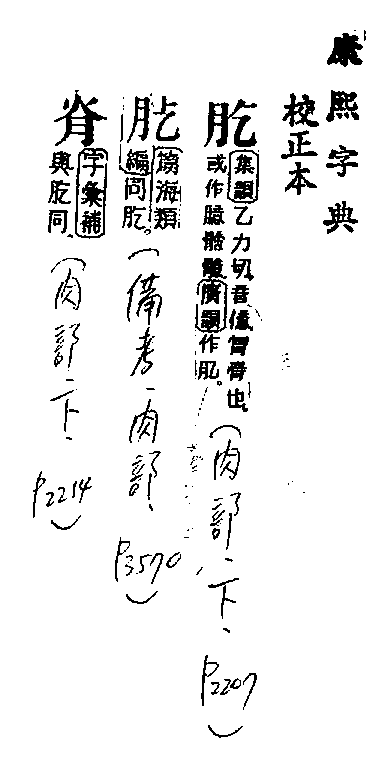 康熙字典
校正本
肐
集韻乙力切音億胷骨也
或作臆骼髓廣韻作肊。
(肉部、下、
P2207)
篇海類
編同肐。
(備考、肉部、
P3570)
脊
字彙補
與肐同、
(肉部、下、
P2214)